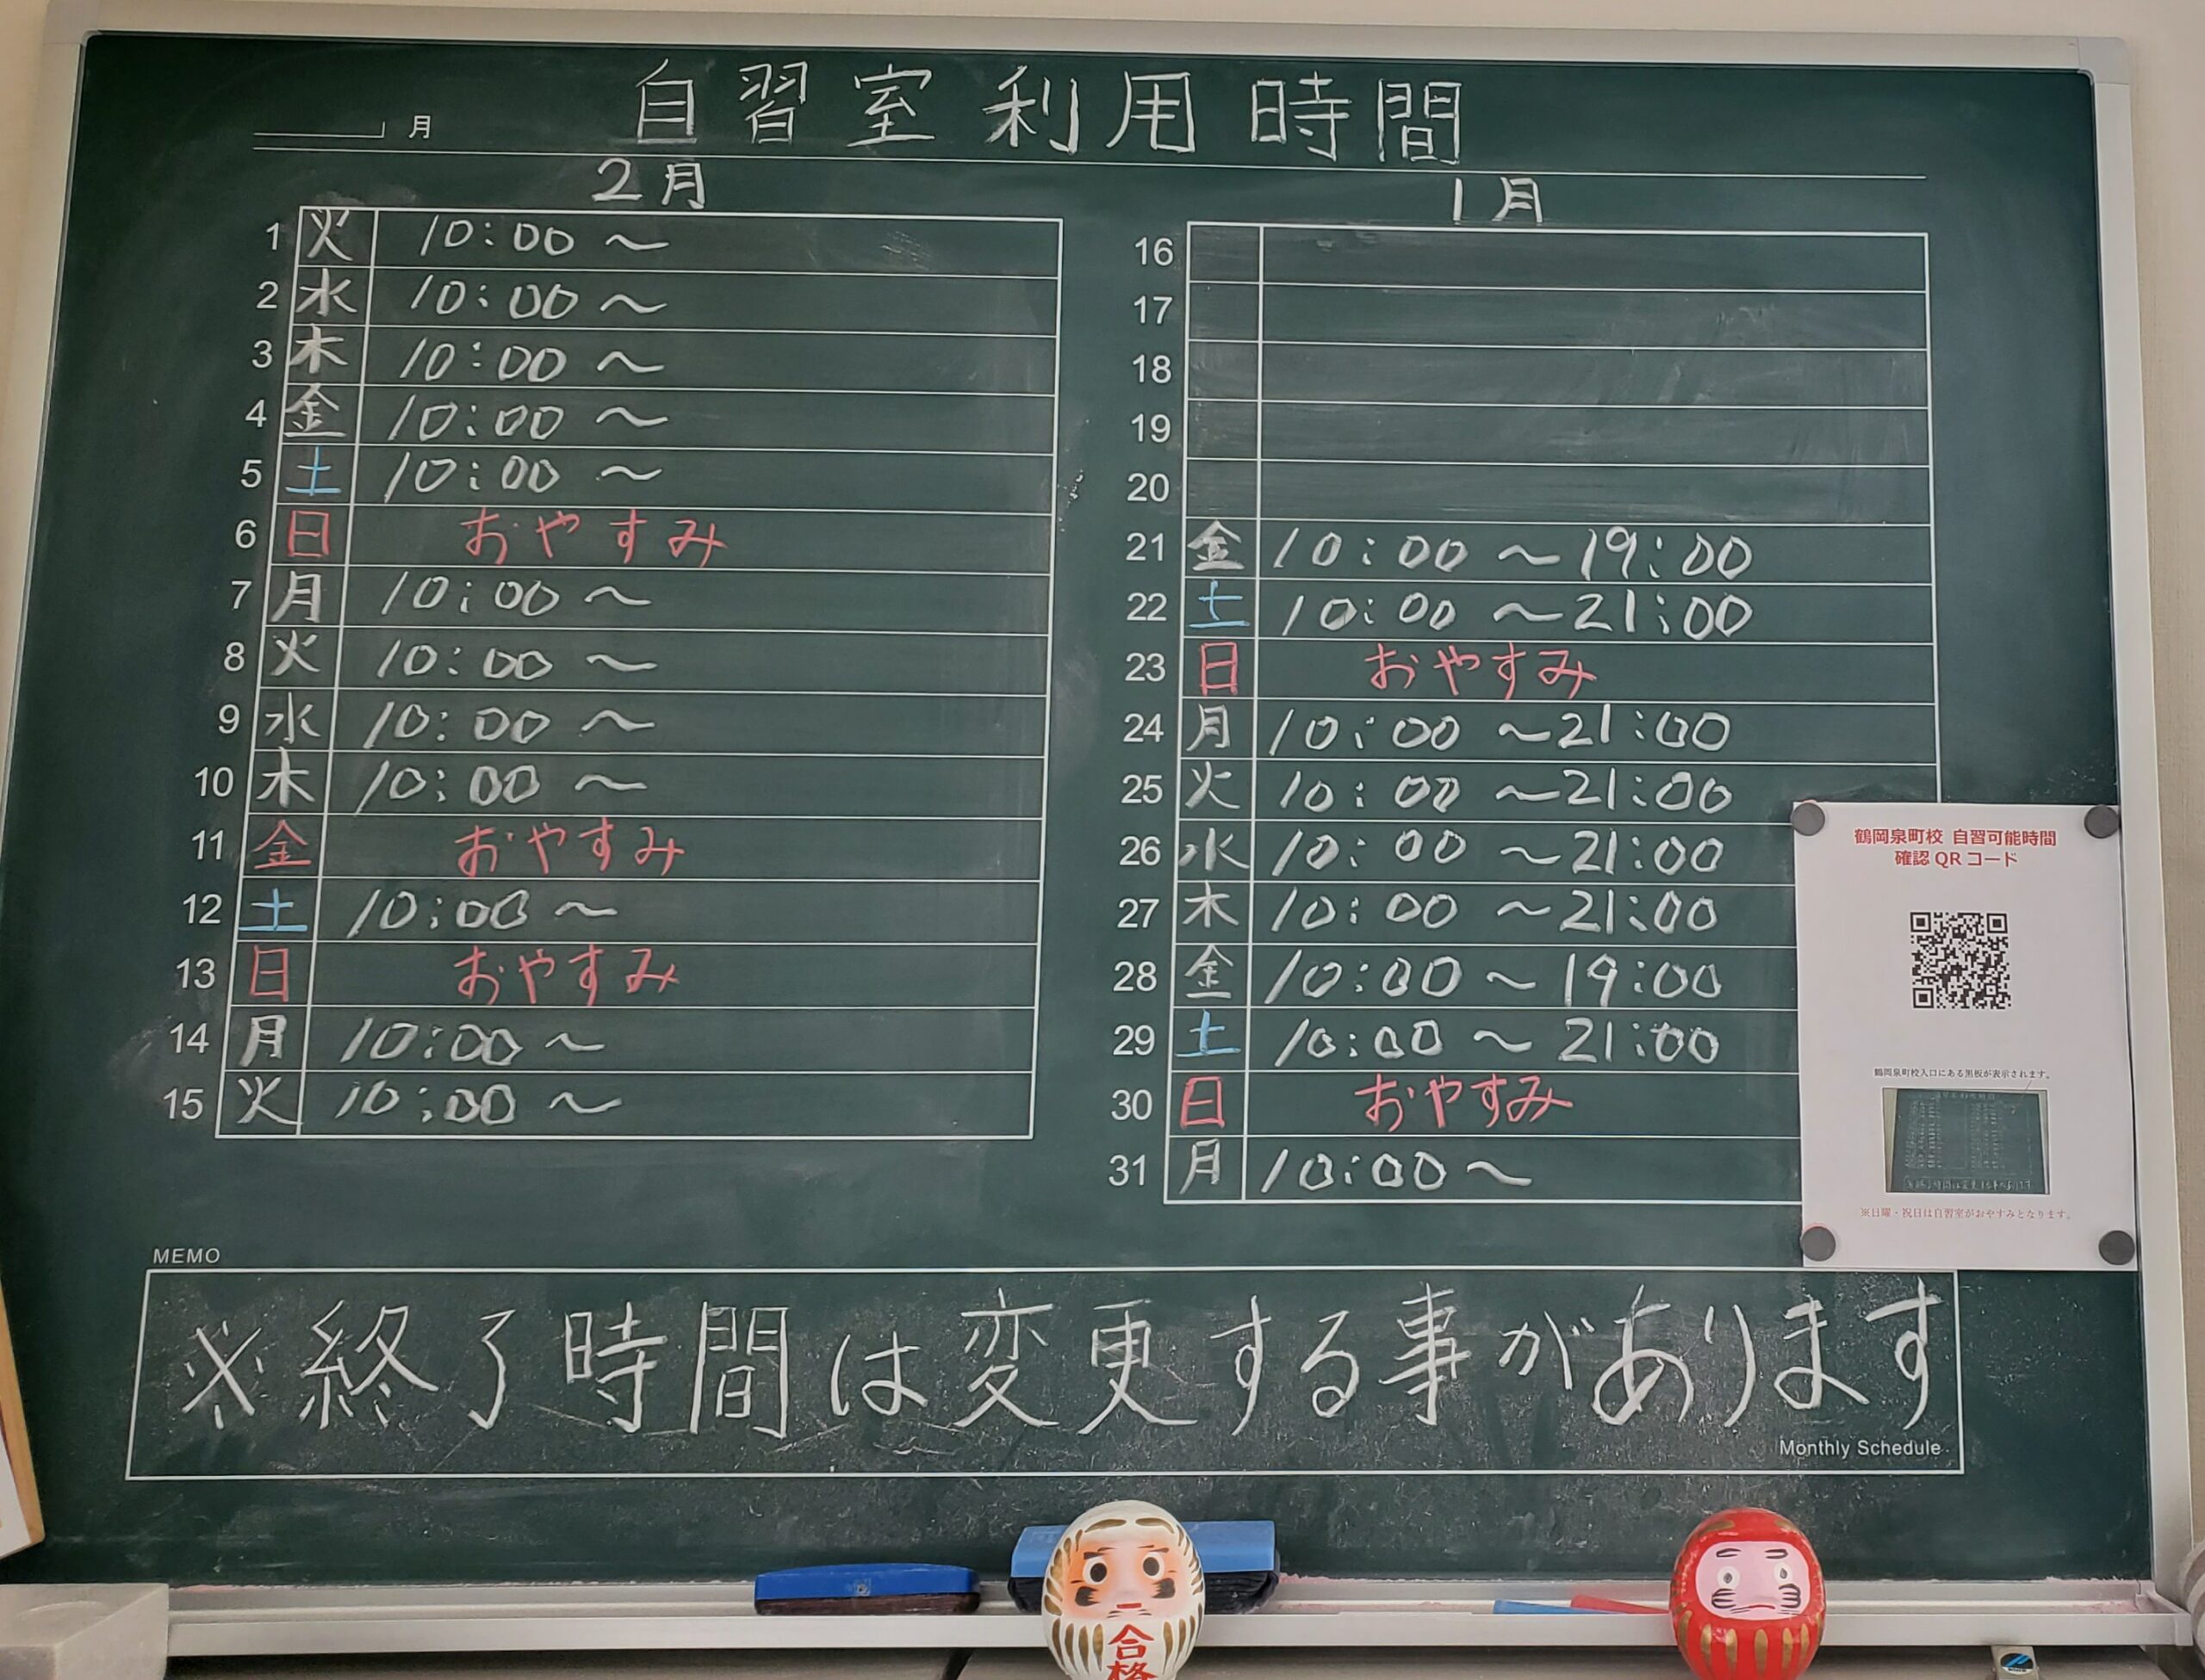 自習室利用時間
月
2月
1 火 10:00 ～
2 水 10:00 ～
3 木 10:00 ～
4 金 10:00 ～
5 土 10:00 ～
6 日 おやすみ
7 月 10:00 ～
8 火 10:00 ～
9 水 10:00 ～
10 木 10:00 ～
11 金 おやすみ
12 土 10:00 ～
13 日 おやすみ
14 月 10:00 ～
15 火 10:00 ～
1月
16
17
18
19
20
21 金 10:00 ～19:00
22 土 10:00 ～21:00
23 日 おやすみ
24 月 10:00 ～21:00
25 火 10:00 ～21:00
26 水 10:00 ～21:00
27 木 10:00 ～21:00
28 金 10:00 ～ 19:00
29 土 10:00 ～ 21:00
30 日 おやすみ
31 月 10:00～
鶴岡泉町校 自習可能時間
確認 QR コード
鶴岡泉町校入口にある黒板が表示されます。
※日曜・祝日は自習室がおやすみとなります。
MEMO
※終了時間は変更する事があります
Monthly Schedule
合格